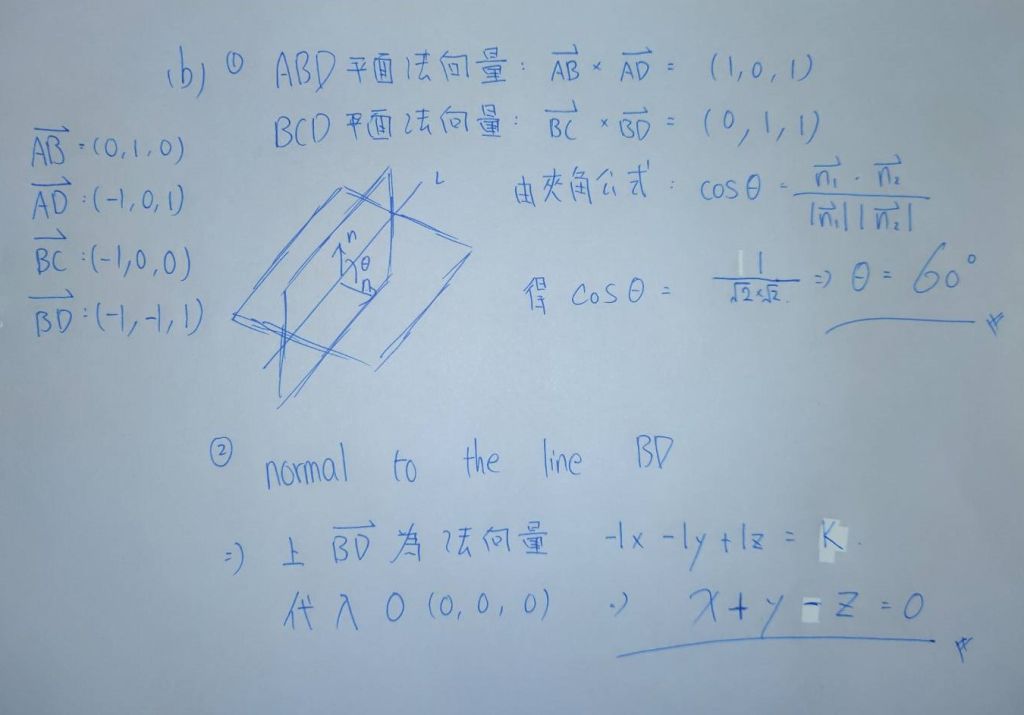 (b) ① ABD 平面法向量: AB × AD = (1,0,1)
BCD 平面法向量: BC × BD = (0,1,1)
AB:(0,1,0)
AD:(-1,0,1)
BC:(-1,0,0)
BD:(-1,-1,1)
L
n
θ
n
由夾角公式: cosθ = n₁ · n₂ / |n₁||n₂|
得 cosθ = 1 / √2×√2. ⇒ θ = 60°
② normal to the line BD
⇒ 上 BD 為法向量 -1x -1y +1z = K.
代入 O (0,0,0) ⇒ x + y - z = 0